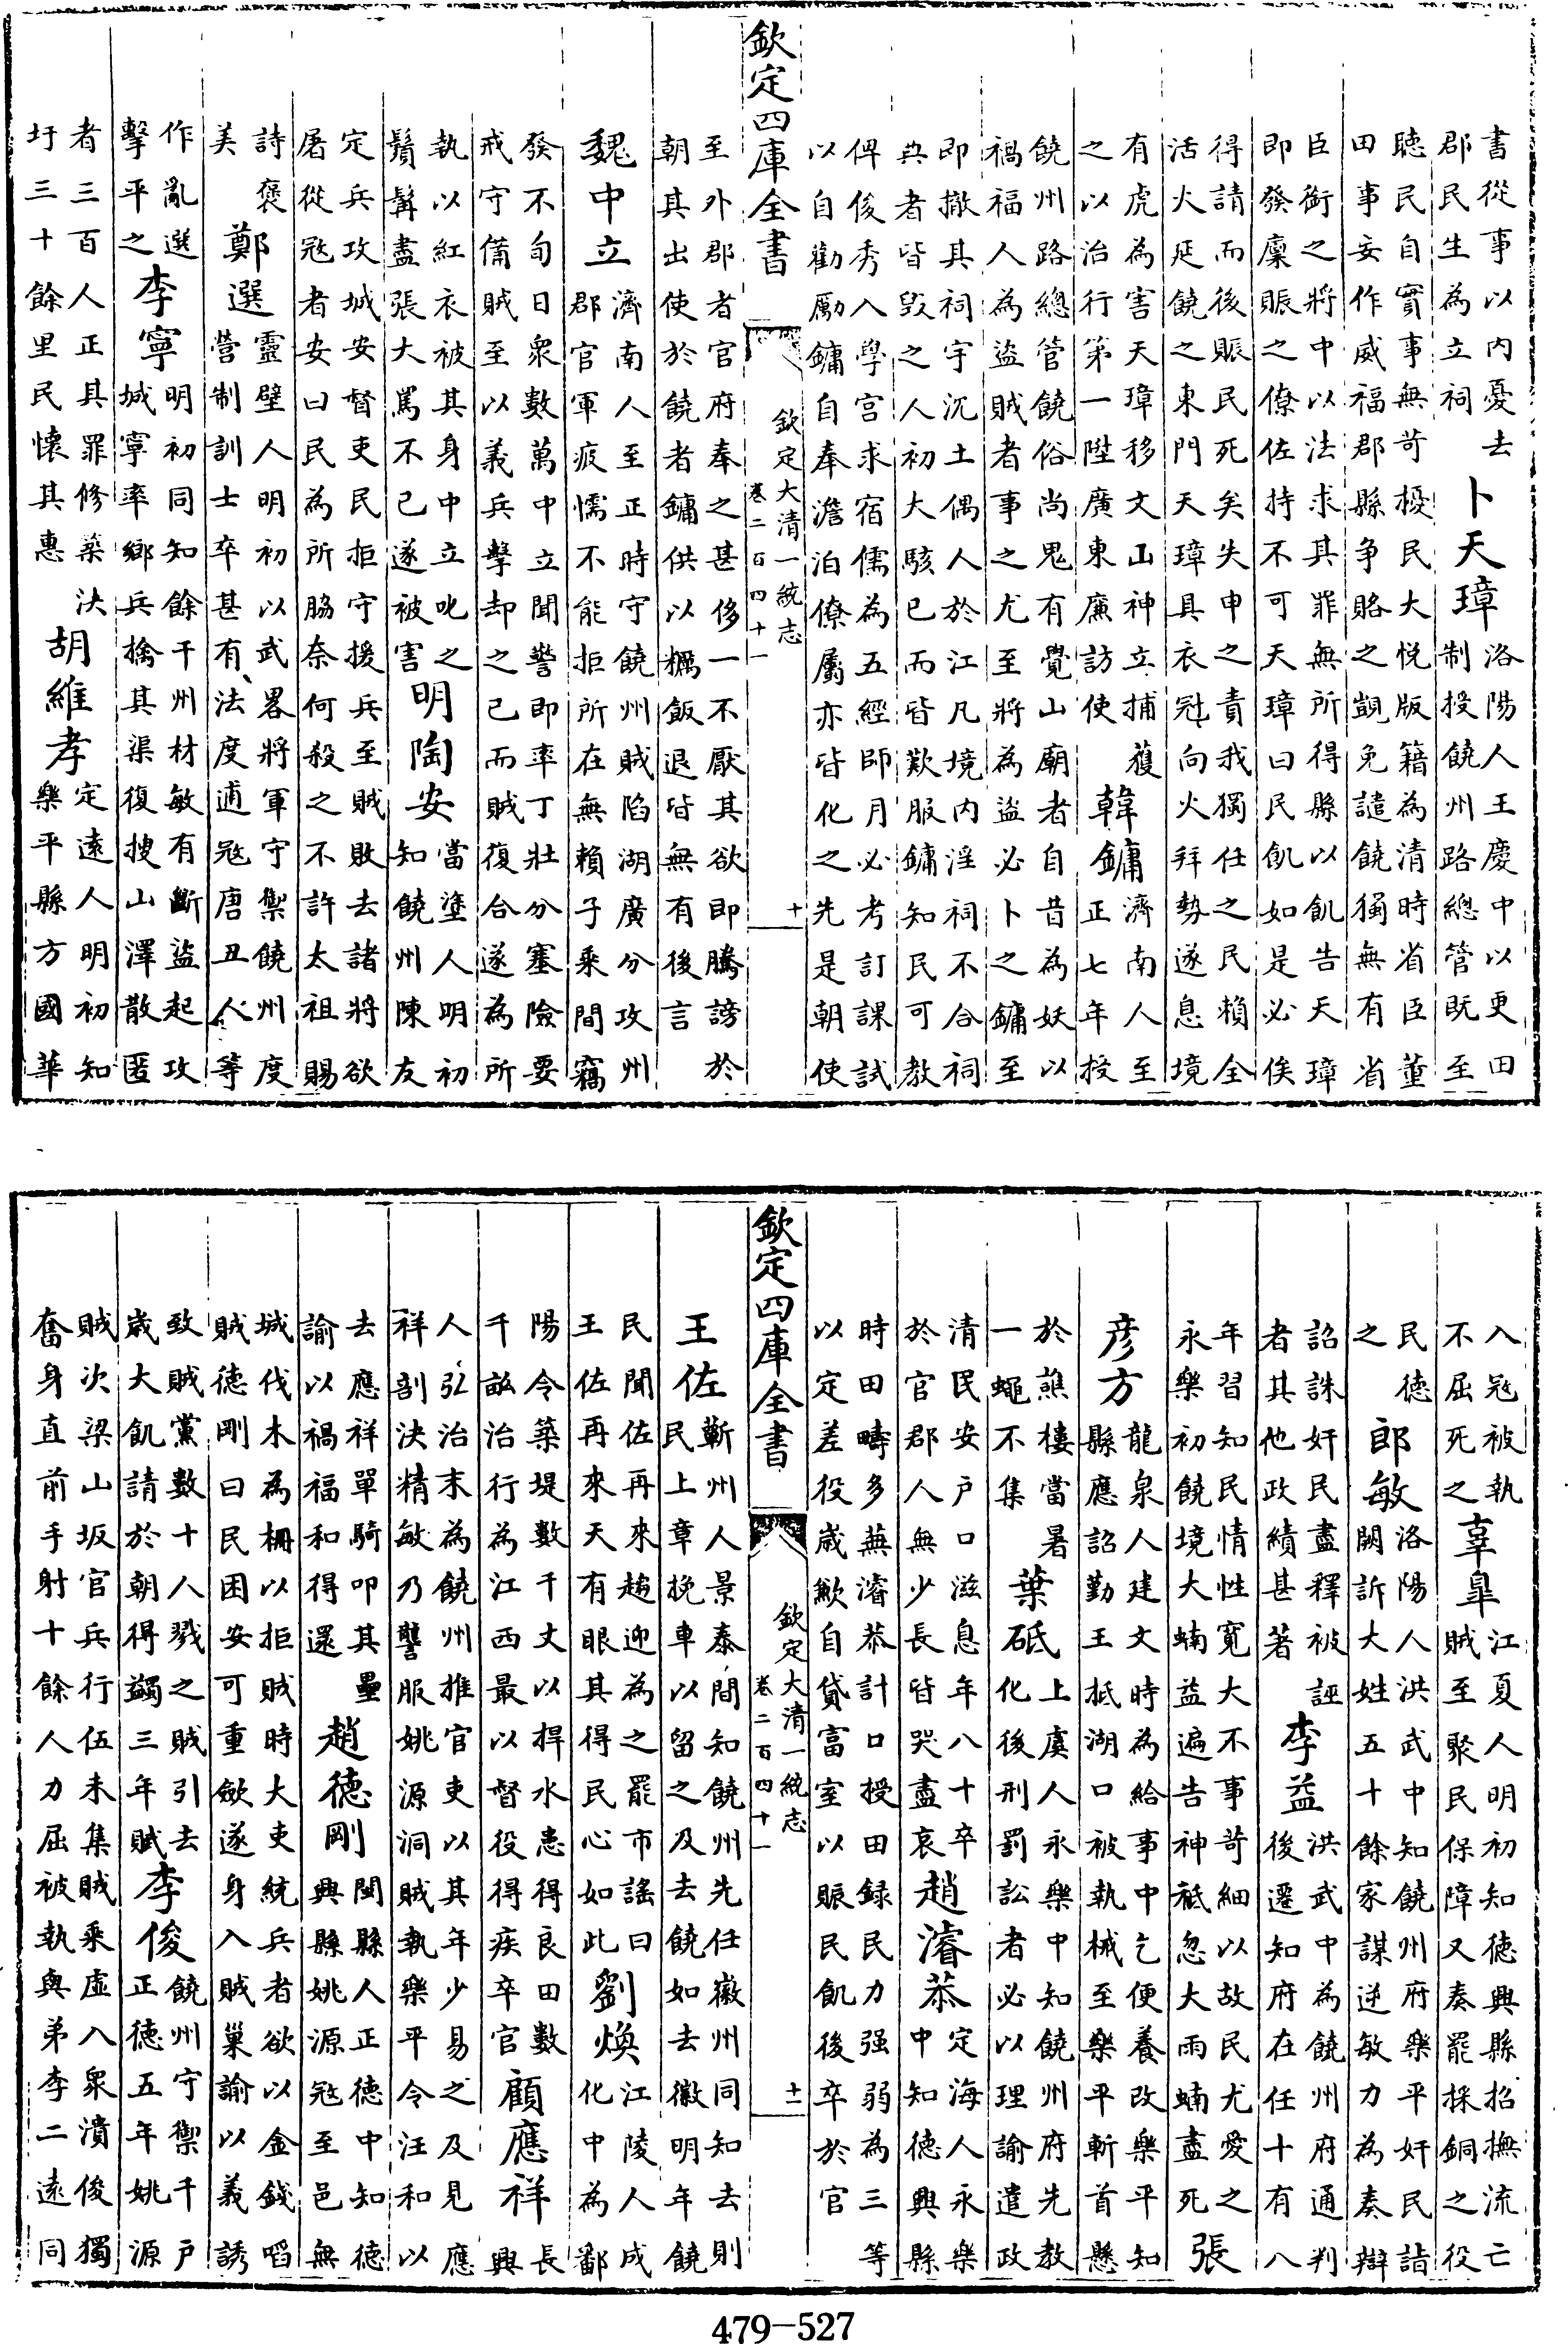 書從事以内憂去
郡民生為立祠
卜天璋
洛陽人王慶中以更田
制授饒州路總管既至
聽民自實事無苛擾民大悦版籍為清時省臣董
田事妄作威福郡縣争賂之覬免譴饒獨無有省
臣銜之將中以法求其罪無所得縣以飢告天璋
即發廩賑之僚佐持不可天璋曰民飢如是必俟
得請而後賑民死矣失申之責我獨任之民賴全
活火延饒之東門天璋具衣冠向火拜勢遂息境
有虎為害天璋移文山神立捕獲
之以治行第一陞廣東廉訪使
韓鏞
濟南人至
正七年授
饒州路總管饒俗尚鬼有覺山廟者自昔為妖以
禍福人為盜賊者事之尤至將為盜必卜之鏞至
即撤其祠宇沉土偶人於江凡境内淫祠不合祠
典者皆毁之人初大駭已而皆歎服鏞知民可教
俾俊秀入學宫求宿儒為五經師月必考訂課試
以自勸勵鏞自奉澹泊僚屬亦皆化之先是朝使
欽定四庫全書
欽定大清一統志
卷二百四十一
十
至外郡者官府奉之甚侈一不厭其欲即騰謗於
朝其出使於饒者鏞供以糲飯退皆無有後言
魏中立
濟南人至正時守饒州賊陷湖廣分攻州
郡官軍疲懦不能拒所在無賴子乘間竊
發不旬日衆數萬中立聞警即率丁壯分塞險要
戒守備賊至以義兵擊却之已而賊復合遂為所
執以紅衣被其身中立叱之
鬚髯盡張大罵不已遂被害
明陶安
當塗人明初
知饒州陳友
定兵攻城安督吏民拒守援兵至賊敗去諸將欲
屠從冦者安曰民為所脇奈何殺之不許太祖賜
詩褒
美
鄭選
靈壁人明初以武畧將軍守禦饒州度
營制訓士卒甚有法度逋冦唐丑人等
作亂選
擊平之
李寧
明初同知餘干州材敏有斷盜起攻
城寧率鄉兵擒其渠復搜山澤散匿
者三百人正其罪修築决
圩三十餘里民懷其惠
胡維孝
定遠人明初知
樂平縣方國華
入冦被執
不屈死之
辜臯
江夏人明初知德興縣招撫流亡
賊至聚民保障又奏罷採銅之役
民德
之
郎敏
洛陽人洪武中知饒州府樂平奸民詣
闕訴大姓五十餘家謀逆敏力為奏辯
詔誅奸民盡釋被誣
者其他政績甚著
李益
洪武中為饒州府通判
後遷知府在任十有八
年習知民情性寬大不事苛細以故民尤愛之
永樂初饒境大蝻益遍告神祗忽大雨蝻盡死
張彦方
龍泉人建文時為給事中乞便養改樂平知
縣應詔勤王抵湖口被執械至樂平斬首懸
於譙樓當暑
一蠅不集
葉砥
上虞人永樂中知饒州府先教
化後刑罰訟者必以理諭遣政
清民安戶口滋息年八十卒
於官郡人無少長皆哭盡哀
趙濬恭
定海人永樂
中知德興縣
時田疇多蕪濬恭計口授田録民力强弱為三等
以定差役歲歉自貸富室以賑民飢後卒於官
欽定四庫全書
欽定大清一統志
卷二百四十一
十一
王佐
蘄州人景泰間知饒州先任徽州同知去則
民上章挽車以留之及去饒如去徽明年饒
民聞佐再來趨迎為之罷市謡曰
王佐再來天有眼其得民心如此
劉煥
江陵人成
化中為鄱
陽令築堤數千丈以捍水患得良田數
千畝治行為江西最以督役得疾卒官
顧應祥
長
興
人弘治末為饒州推官吏以其年少易之及見應
祥剖決精敏乃讋服姚源洞賊執樂平令汪和以
去應祥單騎叩其壘
諭以禍福和得還
趙德剛
閩縣人正德中知德
興縣姚源冦至邑無
城伐木為柵以拒賊時大吏統兵者欲以金錢啗
賊德剛曰民困安可重斂遂身入賊巢諭以義誘
致賊黨數十人戮之賊引去
歲大飢請於朝得蠲三年賦
李俊
饒州守禦千戶
正德五年姚源
賊次梁山坂官兵行伍未集賊乘虛入衆潰俊獨
奮身直前手射十餘人力屈被執與弟李二遠同
479-527